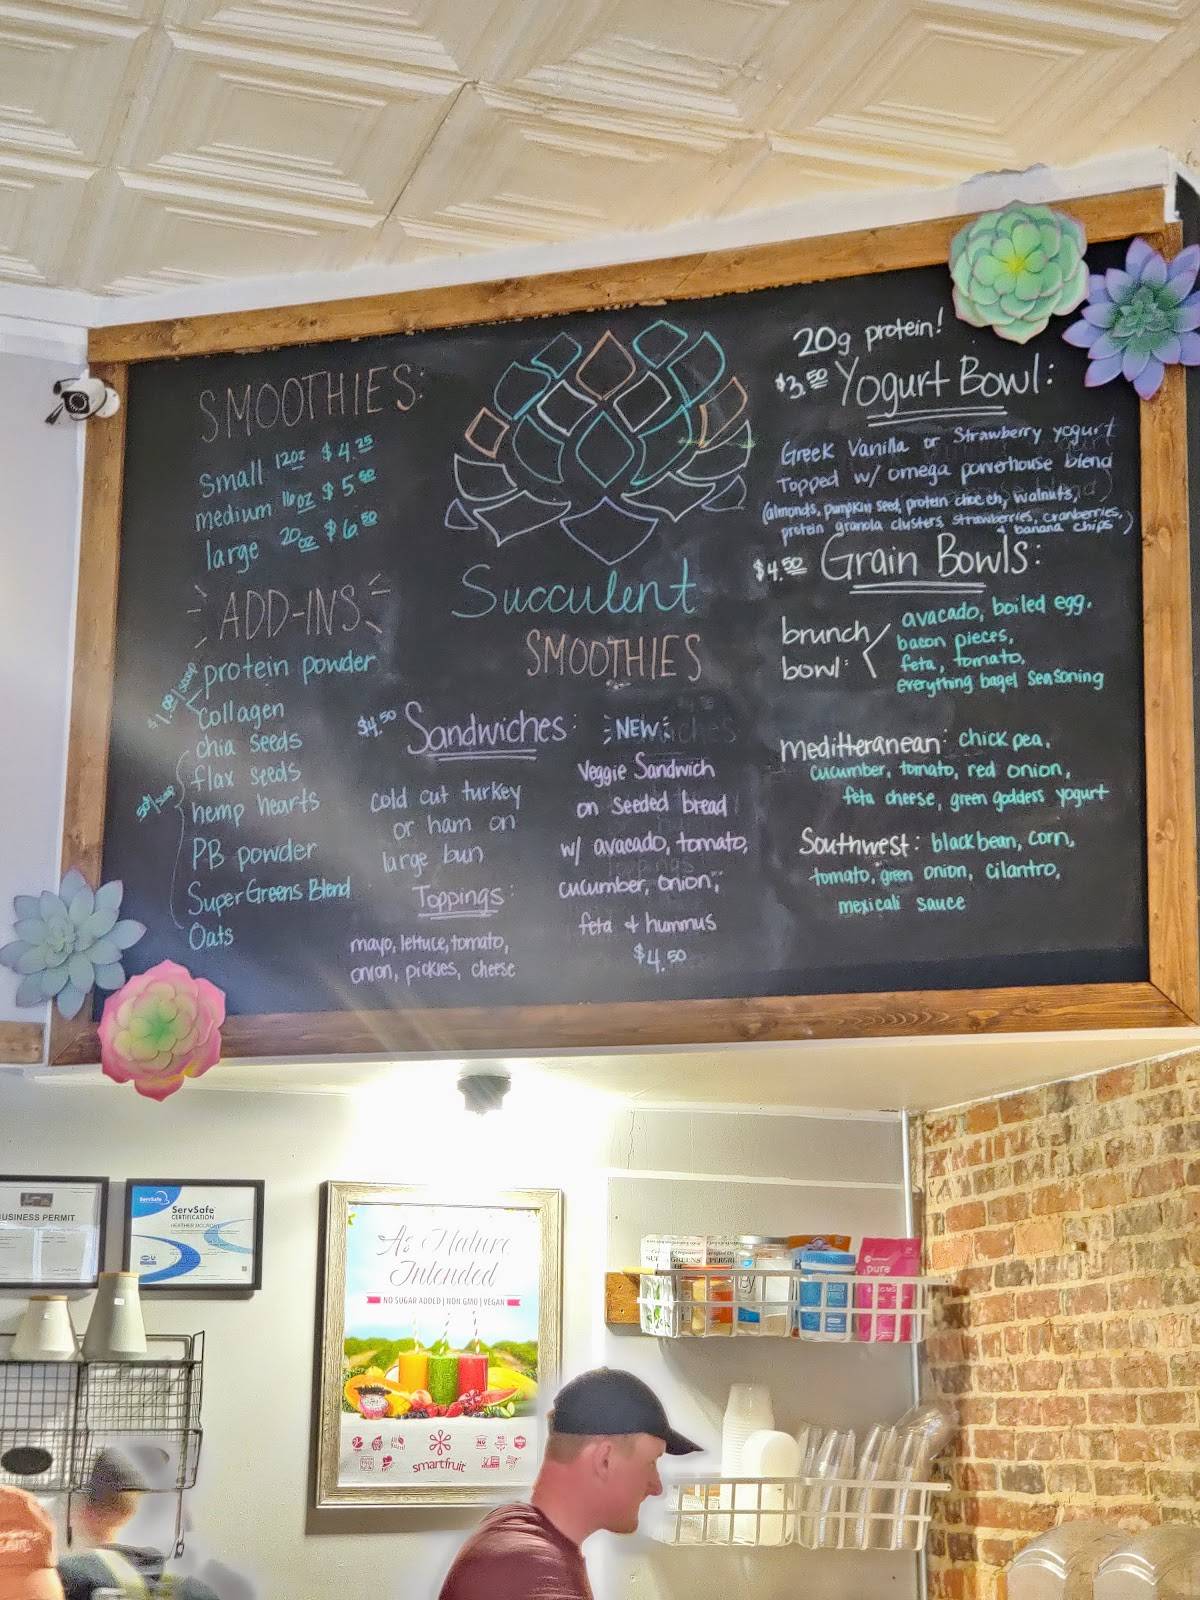 SMOOTHIES:
small 12oz $4.25
medium 16oz $5.50
large 20oz $6.50
ADD-INS
$1.00/scoop
protein powder
Collagen
50¢/scoop
chia seeds
flax seeds
hemp hearts
PB powder
Super Greens Blend
Oats
Succulent
SMOOTHIES
$4.50 Sandwiches:
cold cut turkey
or ham on
large bun
Toppings:
mayo, lettuce, tomato,
onion, pickles, cheese
NEW
Veggie Sandwich
on seeded bread
w/ avacado, tomato,
cucumber, onion,
feta & hummus
$4.50
20g protein!
$3.50 Yogurt Bowl:
Greek Vanilla or Strawberry yogurt
Topped w/ omega powerhouse blend
(almonds, pumpkin seed, protein choc ch, walnuts,
protein granola clusters, strawberries, cranberries,
& banana chips)
$4.50 Grain Bowls:
brunch bowl:
avacado, boiled egg,
bacon pieces,
feta, tomato,
everything bagel seasoning
mediterranean: chick pea,
cucumber, tomato, red onion,
feta cheese, green goddess yogurt
Southwest: black bean, corn,
tomato, green onion, cilantro,
mexicali sauce
BUSINESS PERMIT
ServSafe
ServSafe
CERTIFICATION
As Nature
Intended
NO SUGAR ADDED | NON GMO | VEGAN
smartfruit
pure